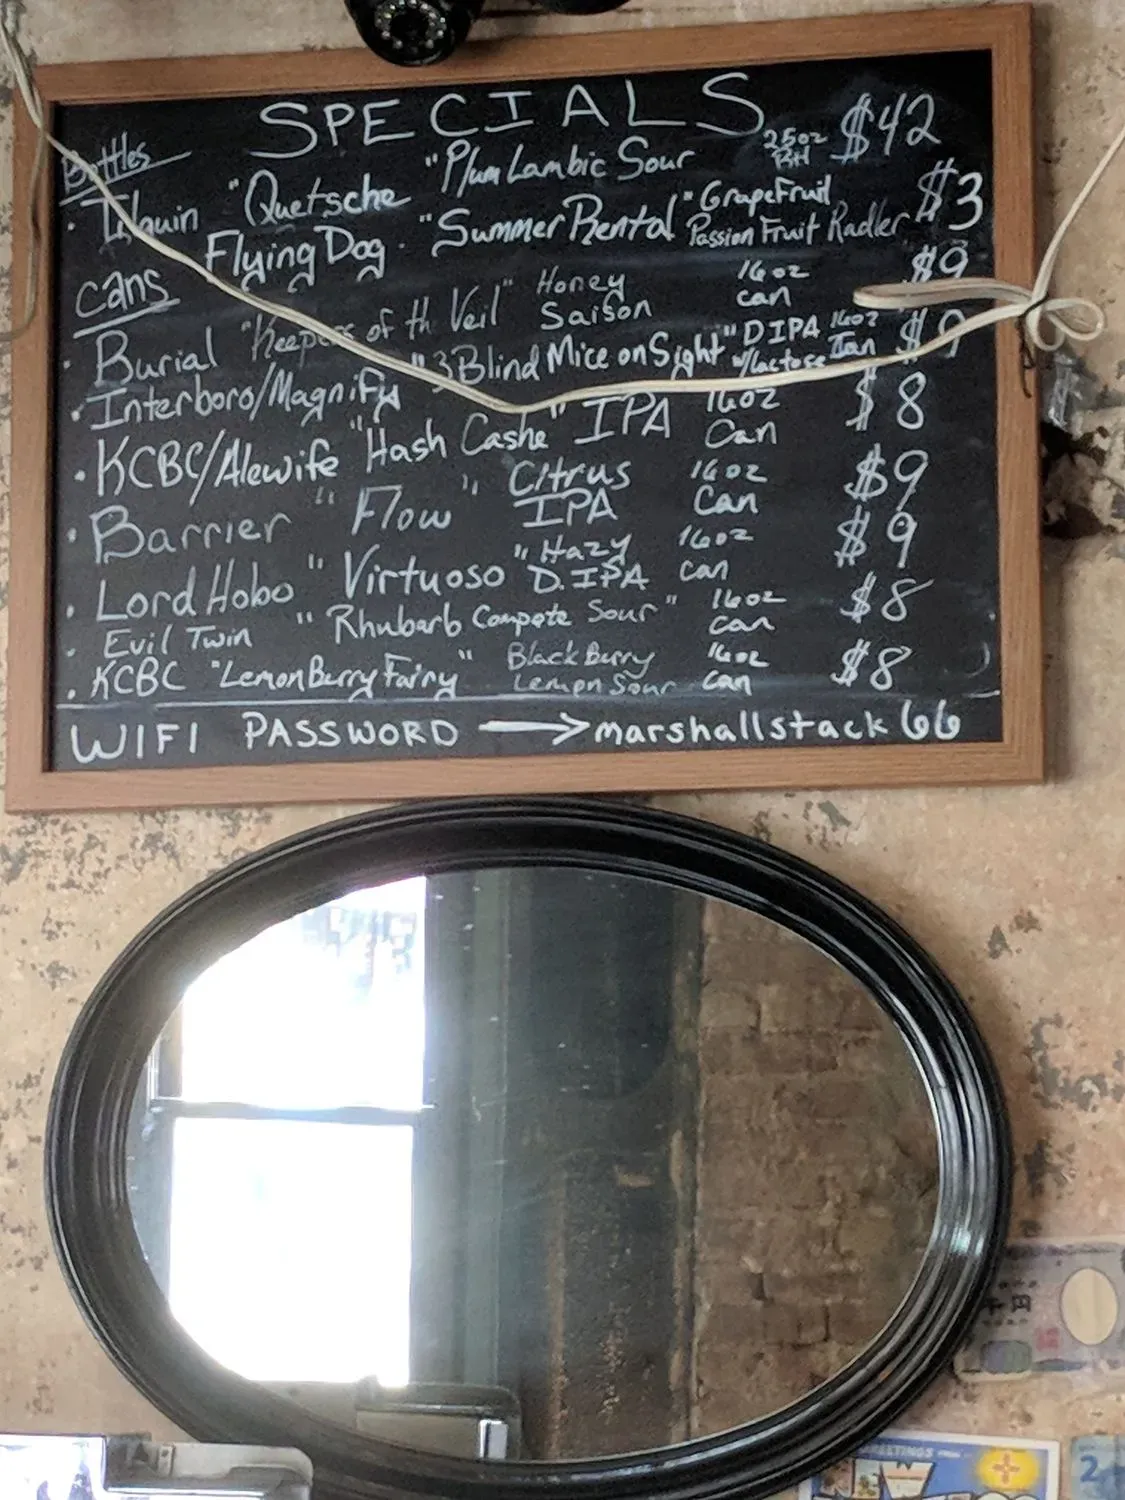 SPECIALS
Bottles
"Quetsche "Plum Lambic Sour 25oz Btl $42
Flying Dog · "Summer Rental" GrapeFruil Passion Fruit Radler $3
cans
· Burial "Keepers of th Veil" Honey Saison 16oz can $9
· Interboro/Magnify "3 Blind Mice on Sight" DIPA w/Lactose 16oz Can $9
· KCBC/Alewife "Hash Cashe" IPA 16oz Can $8
· Barrier "Flow" Citrus IPA 16oz Can $9
· Lord Hobo "Virtuoso" Hazy D.IPA 16oz can $9
· Evil Twin "Rhubarb Compote Sour" 16oz can $8
· KCBC "Lemon Burry Fairy" Black Burry Lemon Sour 16oz can $8
WIFI PASSWORD → marshallstack66
千円
GREETINGS FROM
2